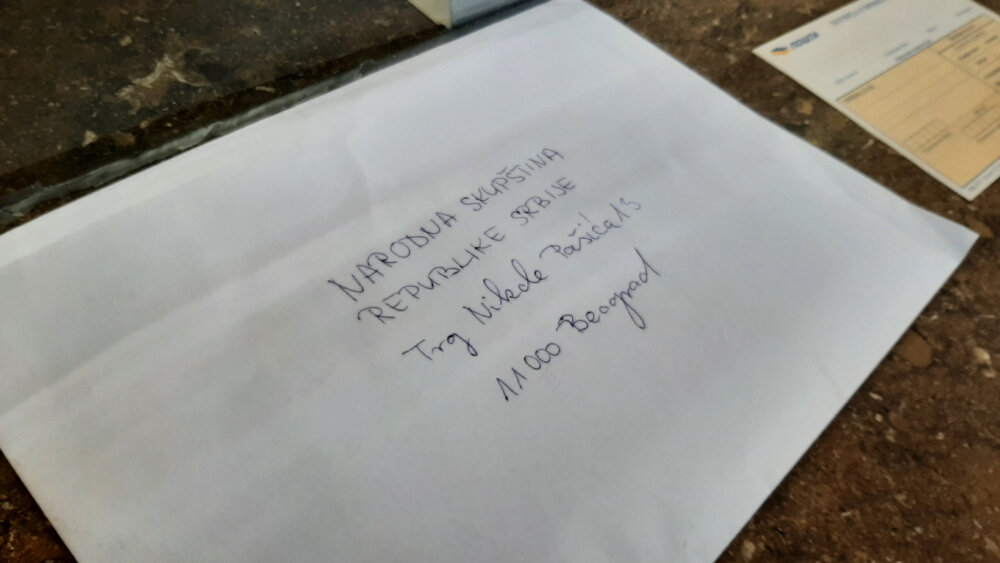 NARODNA SKUPŠTINA
REPUBLIKE SRBIJE
Trg Nikole Pašića 13
11000 Beograd